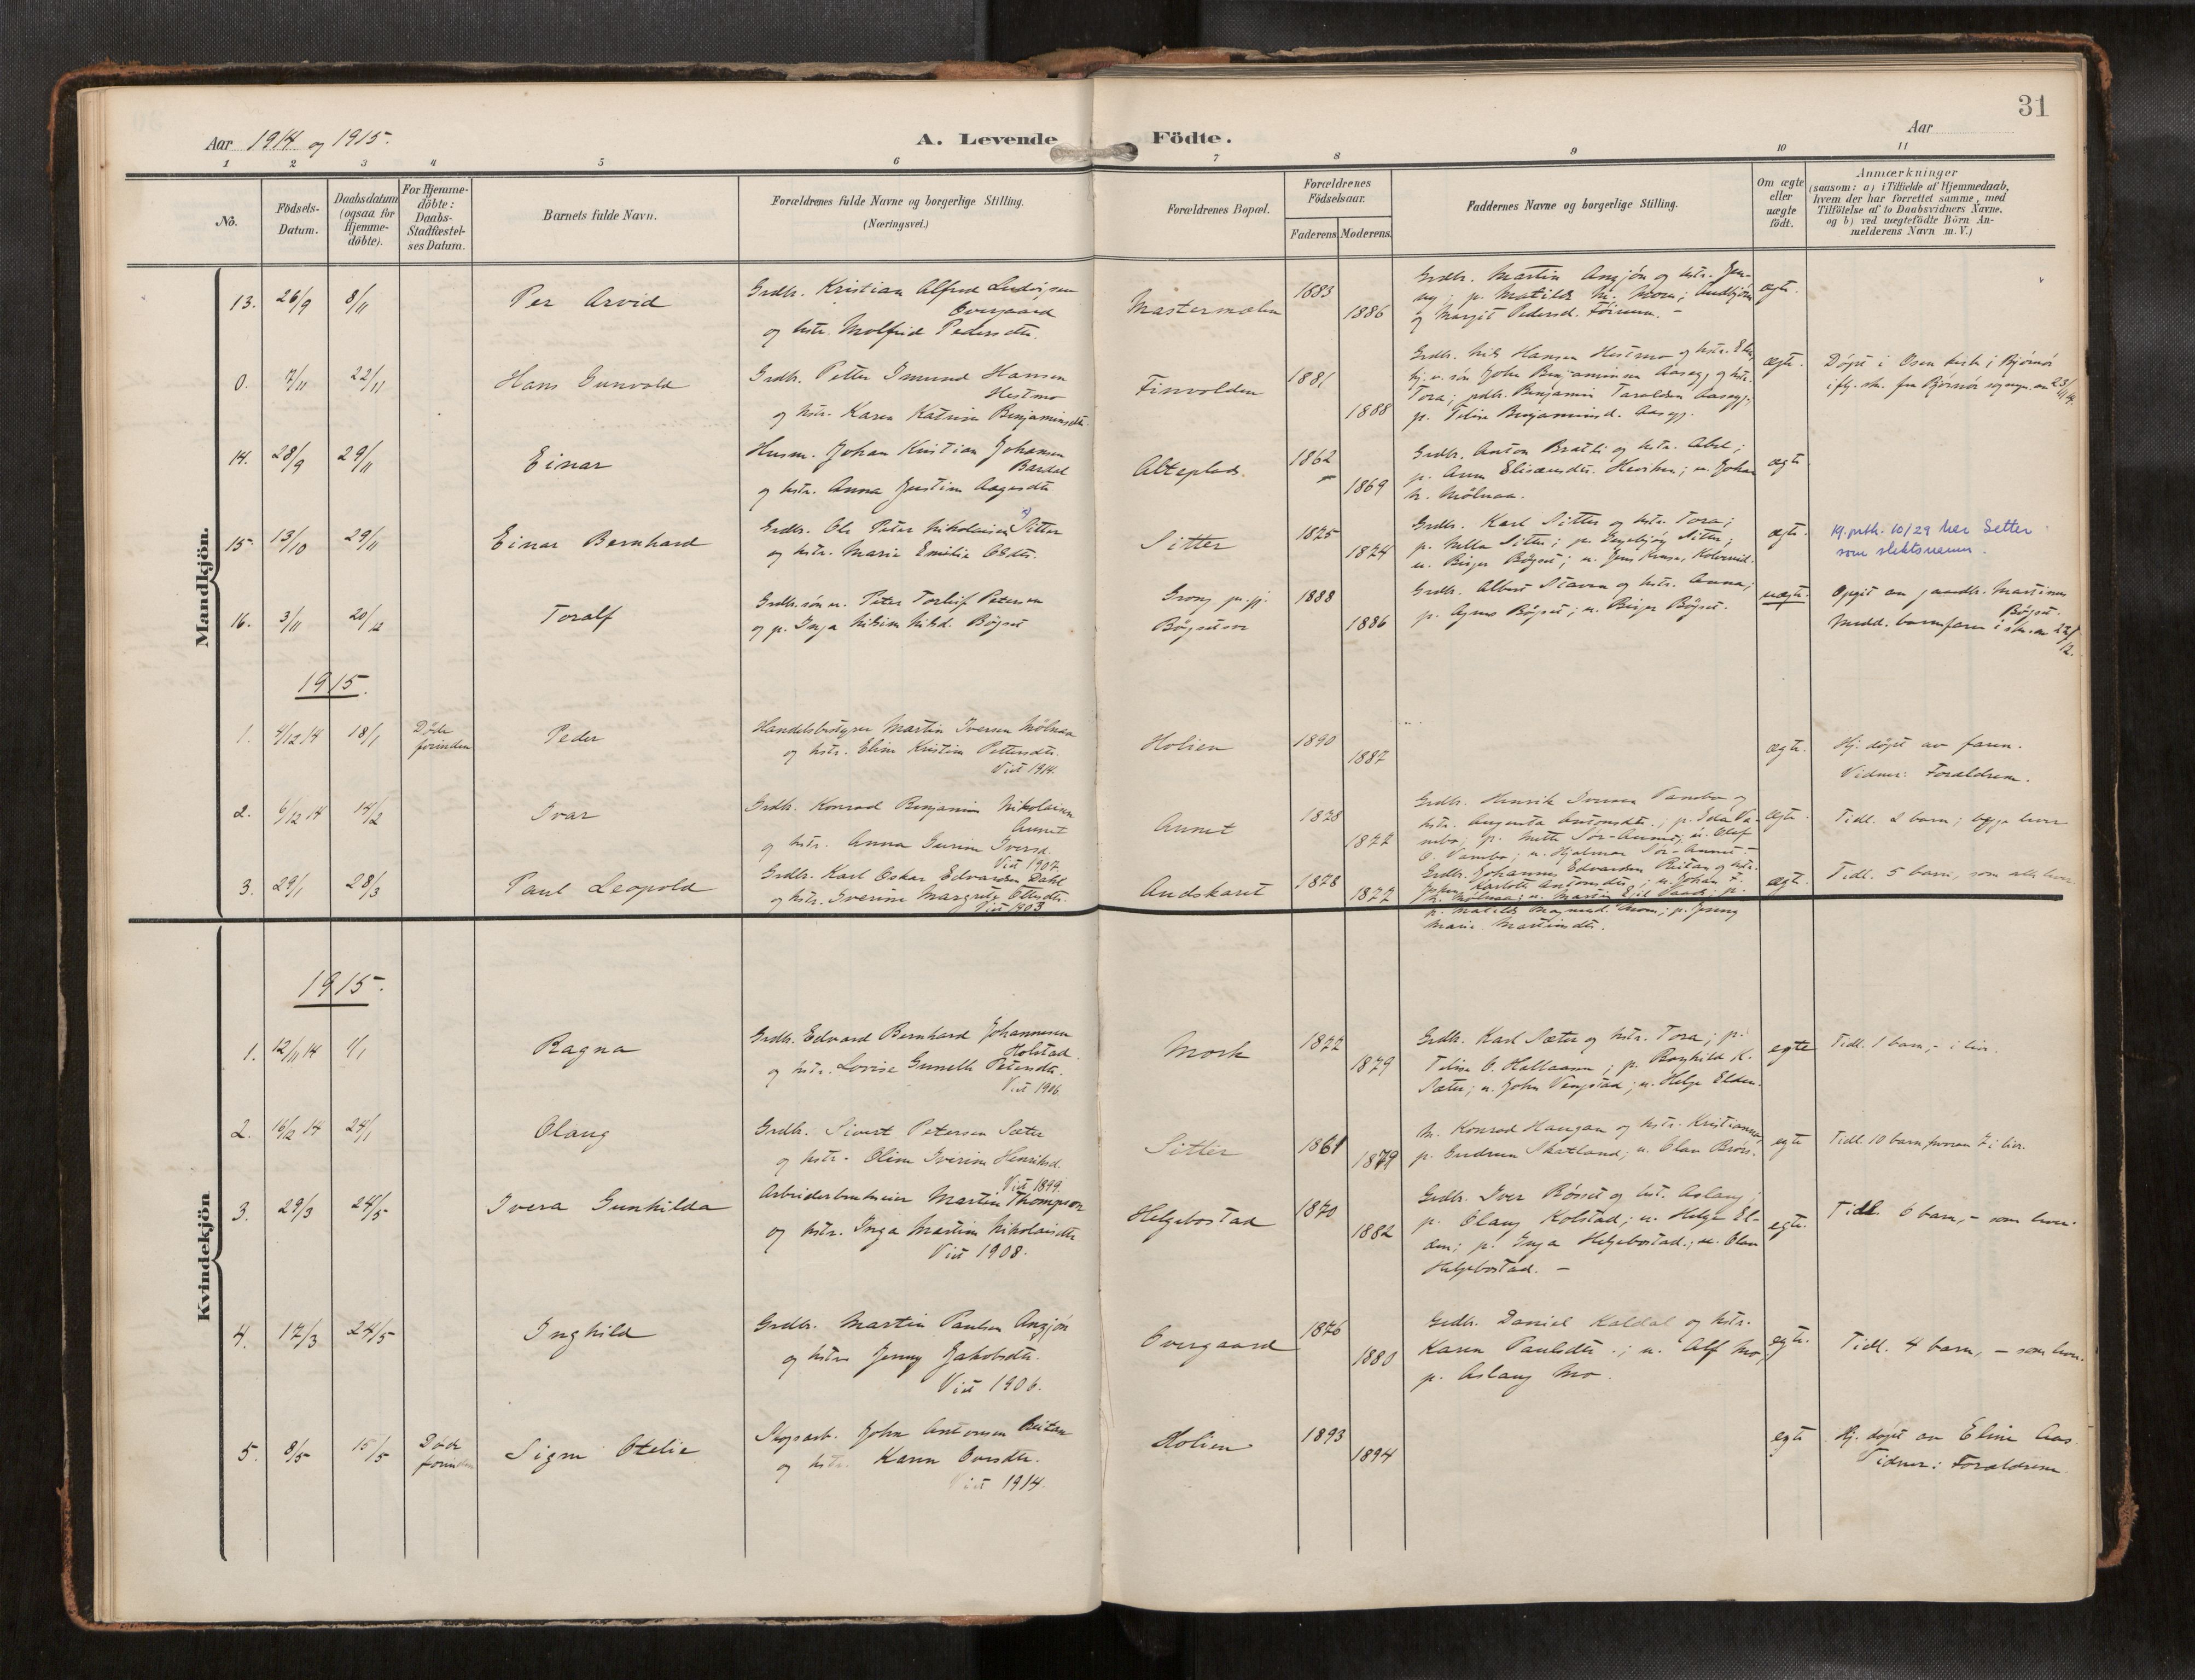 31
Aar 1914 og 1915.
A. Levende Födte.
Aar
1 2 3 4 5 6 7 8 9 10 11
No.
Födsels-Datum.
Daabsdatum (ogsaa for Hjemme-döbte).
For Hjemme-döbte: Daabs-Stadfæstel-ses Datum.
Barnets fulde Navn.
Forældrenes fulde Navne og borgerlige Stilling.
(Næringsvei.)
Forældrenes Bopæl.
Forældrenes Födselsaar.
Faderens. Moderens.
Faddernes Navne og borgerlige Stilling.
Om ægte eller uægte födt.
Anmærkninger
(saasom: a) i Tilfælde af Hjemmedaab,
hvem der har forrettet samme, med
Tilföielse af to Daabsvidners Navne.
og b) ved uægtefödte Börn An-
melderens Navn m. V.)
Mandkjön.
13. 26/9 8/11 Per Arvid
Grdbr. Kristian Alfred Ludvigsen
Overgaard
og hstr. Molfrid Pedersdtr.
1883
1886
Grdbr. Martin Angjön og hstr. Jen-
ny; p. Matilde M. Moen;
og Margit Pedersd.
ægte.
0. 7/11 22/11 Hans Gunvald
Grdbr. Petter Imund Hansen
Hestmo
og hstr. Karen Katrine Benjaminsdtr.
Finvolden
1881
1888
Grdbr. Nils Hansen Hestmo og hstr.
Tora; Benjamin Taraldsen Aasegg;
ægte.
Döpt i Osen kirke i Bjørnør
14. 28/9 29/11 Einar
Husm. Johan Kristian Johansen
Bardal
og hstr. Anna Justine Aagesdtr.
Alteplads.
1862
1869
Grdbr. Anton Bratli og hstr. Abel;
p. Anna u. Johan
N. Mölnaa.
ægte
15. 13/10 29/11 Einar Bernhard
Grdbr. Ole Peter Nikolaisen Sitter x)
og hstr. Marie Emilie Olsdtr.
Sitter
1875
1874
Grdbr. Karl Sitter og hstr. Tora;
p. Sitter; p. Ingebjörg Sitter;
u. Birger Bögset; u. Jens
ægte.
10/29 her Setter
som slektsnavn.
16. 3/11 20/12 Toralf
Grdbr. sön u. Peter Torleif Petersen
og p. Inga Nilsine Nilsd. Bögset
Grong pr.gj.
1888
1886
Grdbr. Albert Staven og hstr. Anna;
p. Agnes Bögset; u. Birger Bögset.
uægte.
Opgit av Martinus
Bögset.
Medd. barnefaren i 22/12.
1915.
1. 4/12 14 18/1 Döde forinden Peder
Handelsbestyrer Martin Iversen Mölnaa
og hstr. Eline Kristine Pettersdtr.
Viet 1914.
Holien
1890
1887
ægte.
Hj. döpt av faren.
Vidner: Forældrene.
2. 6/12 14 14/2 Ivar
Grdbr. Konrad Benjamin Nikolaisen
Aunet
og hstr. Anna Gurine Iversd.
Viet 1907.
Aunet
1878
1877
Grdbr. Henrik Iversen Vambo og
hstr. Augusta Antonsdtr.; p. Ida Va-
mbo; p. Mette Sör-Aunet; u. Olaf
O. Vambo; u. Hjalmar Sör-Aunet.
ægte.
Tidl. 2 barn; begge lever
3. 29/1 28/3 Paul Leopold
Grdbr. Karl Oskar Edvardsen Dahl
og hstr. Iverine Margrete Ottesdtr.
Viet 1903
Andskaret
1878
1877
Grdbr. Johannes Edvardsen Reitan og hstr.
Karlotte Antonsdtr.; u. Johan F.
p. Matilde Magnusd. Moen; p. Jenny
Marie Martinsdtr.
ægte.
Tidl. 5 barn, som alle lever
Kvindekjön
1915.
1. 12/11 14 1/1 Ragna
Grdbr. Edvard Bernhard Johannesen
Holstad
og hstr. Lovise Gunelle Petersdtr.
Viet 1906.
Mork
1877
1879
Grdbr. Karl Sæter og hstr. Tora; p.
Tiline O. p. Ragnhild K.
Sæter; u. John Vengstad; u. Helge Elden.
egte
Tidl. 1 barn, - i live.
2. 16/12 14 24/1 Olaug
Grdbr. Sivert Petersen Sæter
og hstr. Oline Iverine Henriksd.
Viet 1899.
Sitter
1861
1879
M. Konrad Haugan og hstr. Kristianna;
p. Gudrun Skatland; u. Olav Brörs.
egte
Tidl. 10 barn, hvorav 7 i live.
3. 29/3 24/5 Ivera Gunhilda
Arbeiderbruksier Martin Thompson
og hstr. Inga Martine Nikolaisdtr.
Viet 1908.
Helgebostad
1870
1882
Grdbr. Iver Rösset og hst. Aslaug;
p. Olaug Kolstad; u. Helge El-
den; p. Inga Helgebostad; u. Olav
Helgebostad. -
egte.
Tidl. 6 barn, - som lever.
4. 17/3 24/5 Inghild
Grdbr. Martin Paulsen Angjön
og hstr. Jenny Jakobsdtr.
Viet 1906.
Overgaard
1876
1880
Grdbr. Daniel Kaldal og hstr.
Karen Paulsdtr.; u. Alf Mo,
p. Aslaug Mo.
egte.
Tidl. 4 barn, - som lever.
5. 8/5 15/5 Döde forinden Signe Otelie
Skogsarb. John Antonsen Reitan
og hstr. Karen Ovesdtr.
Viet 1914.
Holien
1893
1894
egte
Hj. döpt av Eline Aas
Vidner: Forældrene